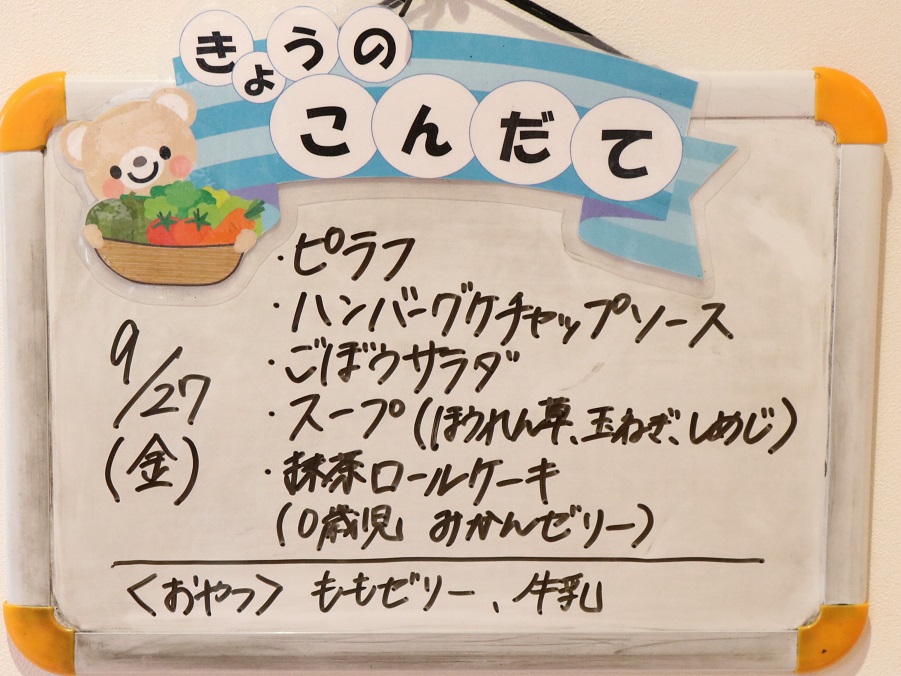 きょうの
こんだて
・ピラフ
・ハンバーグケチャップソース
・ごぼうサラダ
・スープ(ほうれん草、玉ねぎ、しめじ)
・抹茶ロールケーキ
(0歳児 みかんゼリー)
9/27
(金)
<おやつ> ももゼリー、牛乳